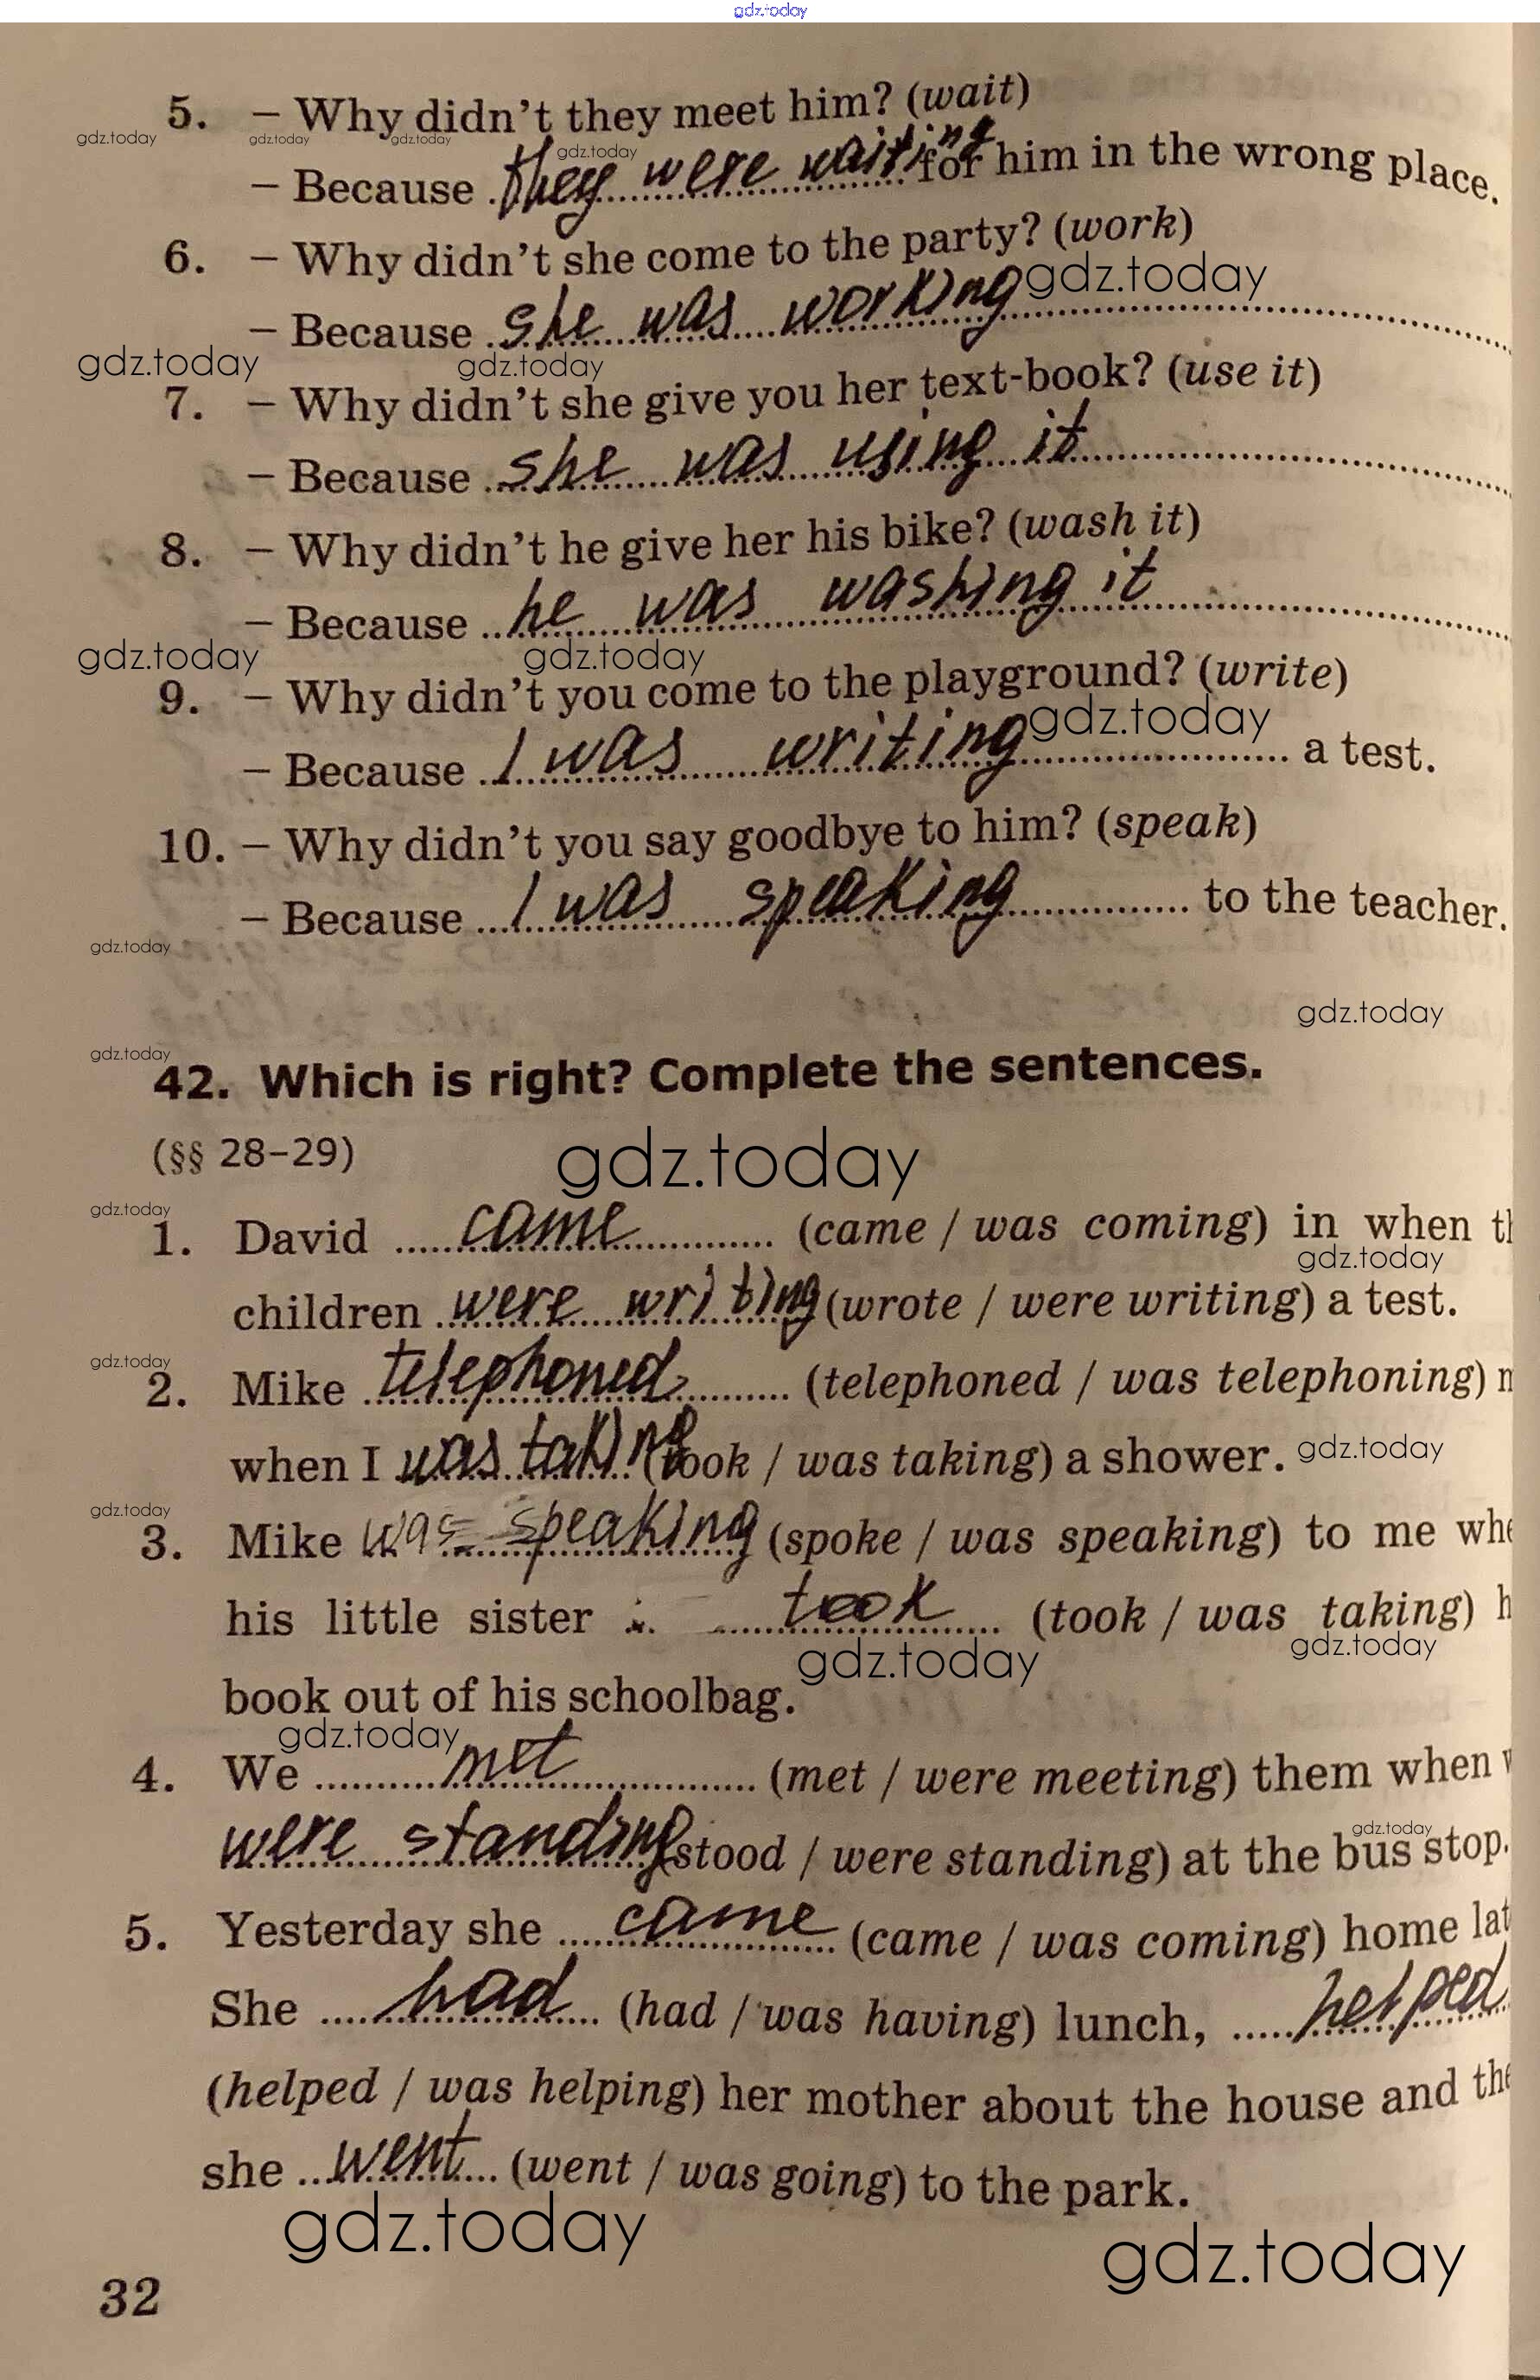 gdz.today
5. – Why didn't they meet him? (wait)
gdz.today gdz.today gdz.today gdz.today
– Because they were waiting for him in the wrong place.
6. – Why didn't she come to the party? (work)
gdz.today
– Because she was working
gdz.today gdz.today
7. – Why didn't she give you her text-book? (use it)
– Because she was using it
8. – Why didn't he give her his bike? (wash it)
– Because he was washing it
gdz.today gdz.today
9. – Why didn't you come to the playground? (write)
gdz.today
– Because I was writing a test.
10. – Why didn't you say goodbye to him? (speak)
– Because I was speaking to the teacher.
gdz.today
gdz.today
gdz.today
42. Which is right? Complete the sentences.
(§§ 28–29)
gdz.today
gdz.today
1. David came (came / was coming) in when
gdz.today
children were writing (wrote / were writing) a test.
gdz.today
2. Mike telephoned (telephoned / was telephoning)
when I was taking (took / was taking) a shower.
gdz.today
gdz.today
3. Mike was speaking (spoke / was speaking) to me
his little sister took (took / was taking)
gdz.today gdz.today
book out of his schoolbag.
gdz.today
4. We met (met / were meeting) them when
gdz.today
were standing (stood / were standing) at the bus stop.
5. Yesterday she came (came / was coming) home
She had (had / was having) lunch, helped
(helped / was helping) her mother about the house and
she went (went / was going) to the park.
gdz.today gdz.today
32